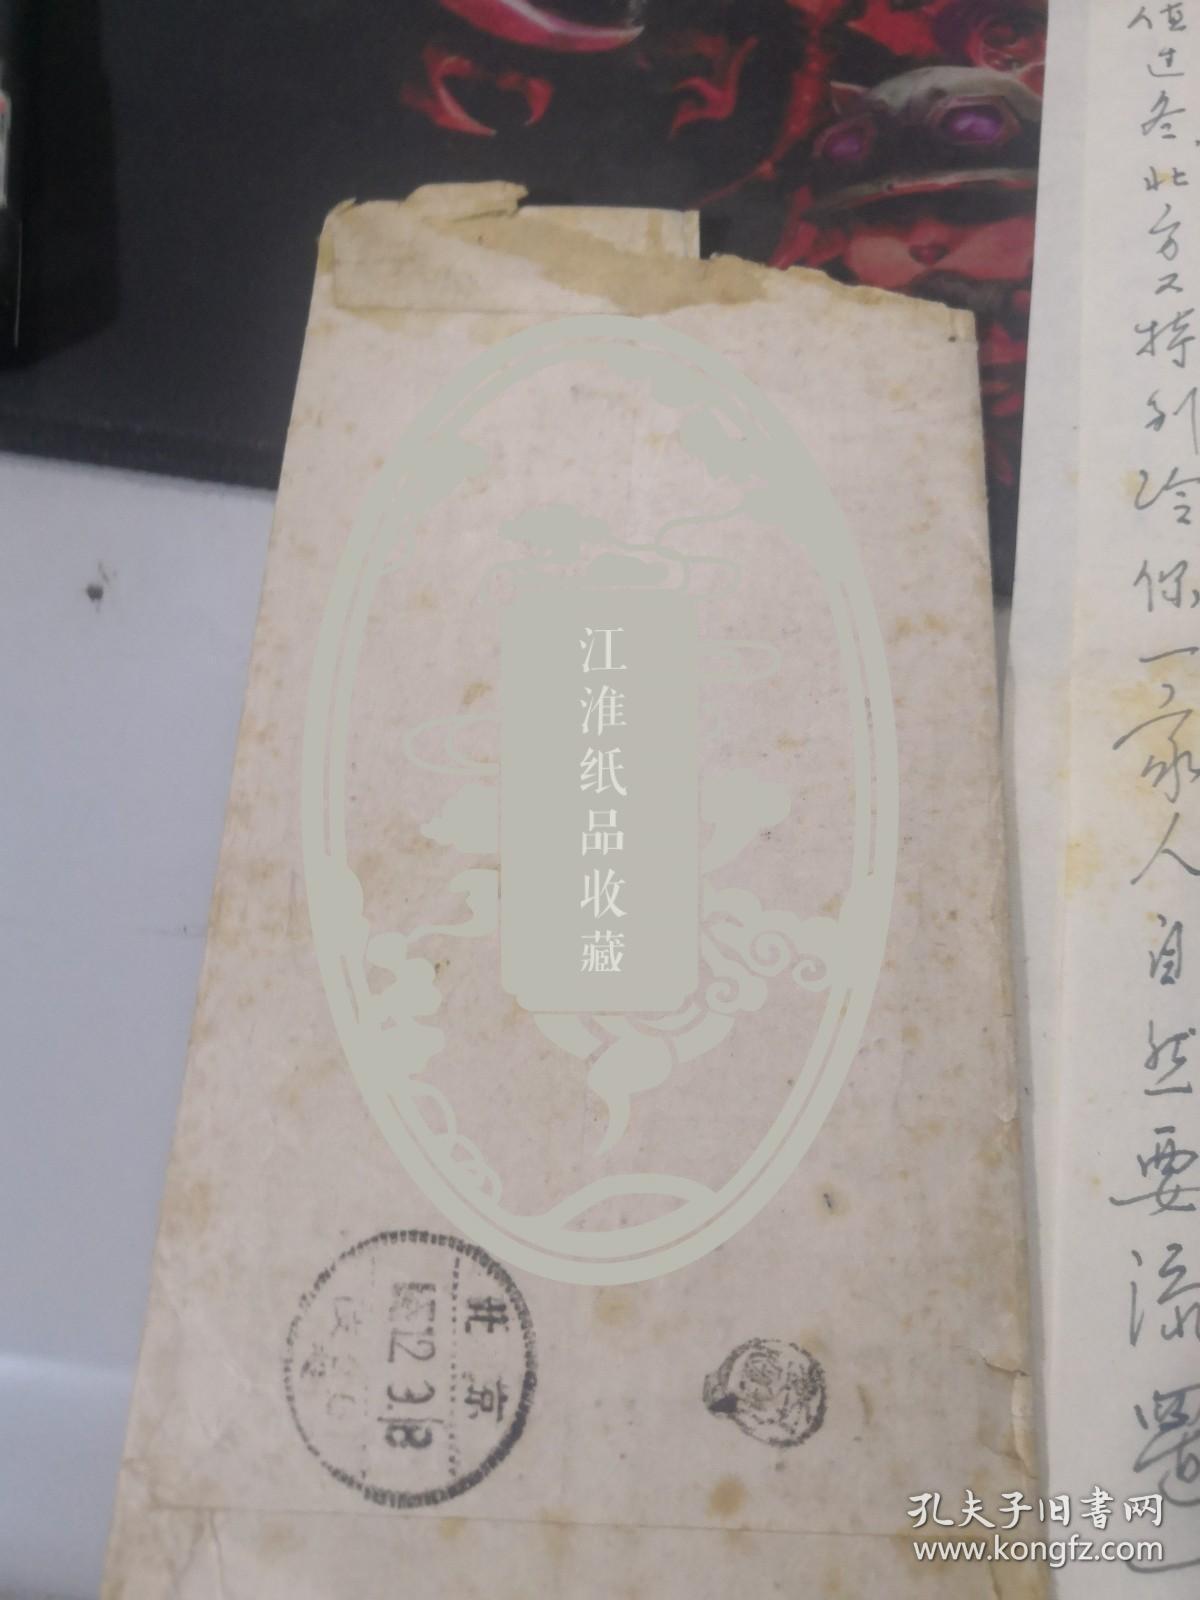 值过冬北方又特别冷你一家人自然要添置
江淮纸品收藏
北京
12 3 18
孔夫子旧书网
www.kongfz.com